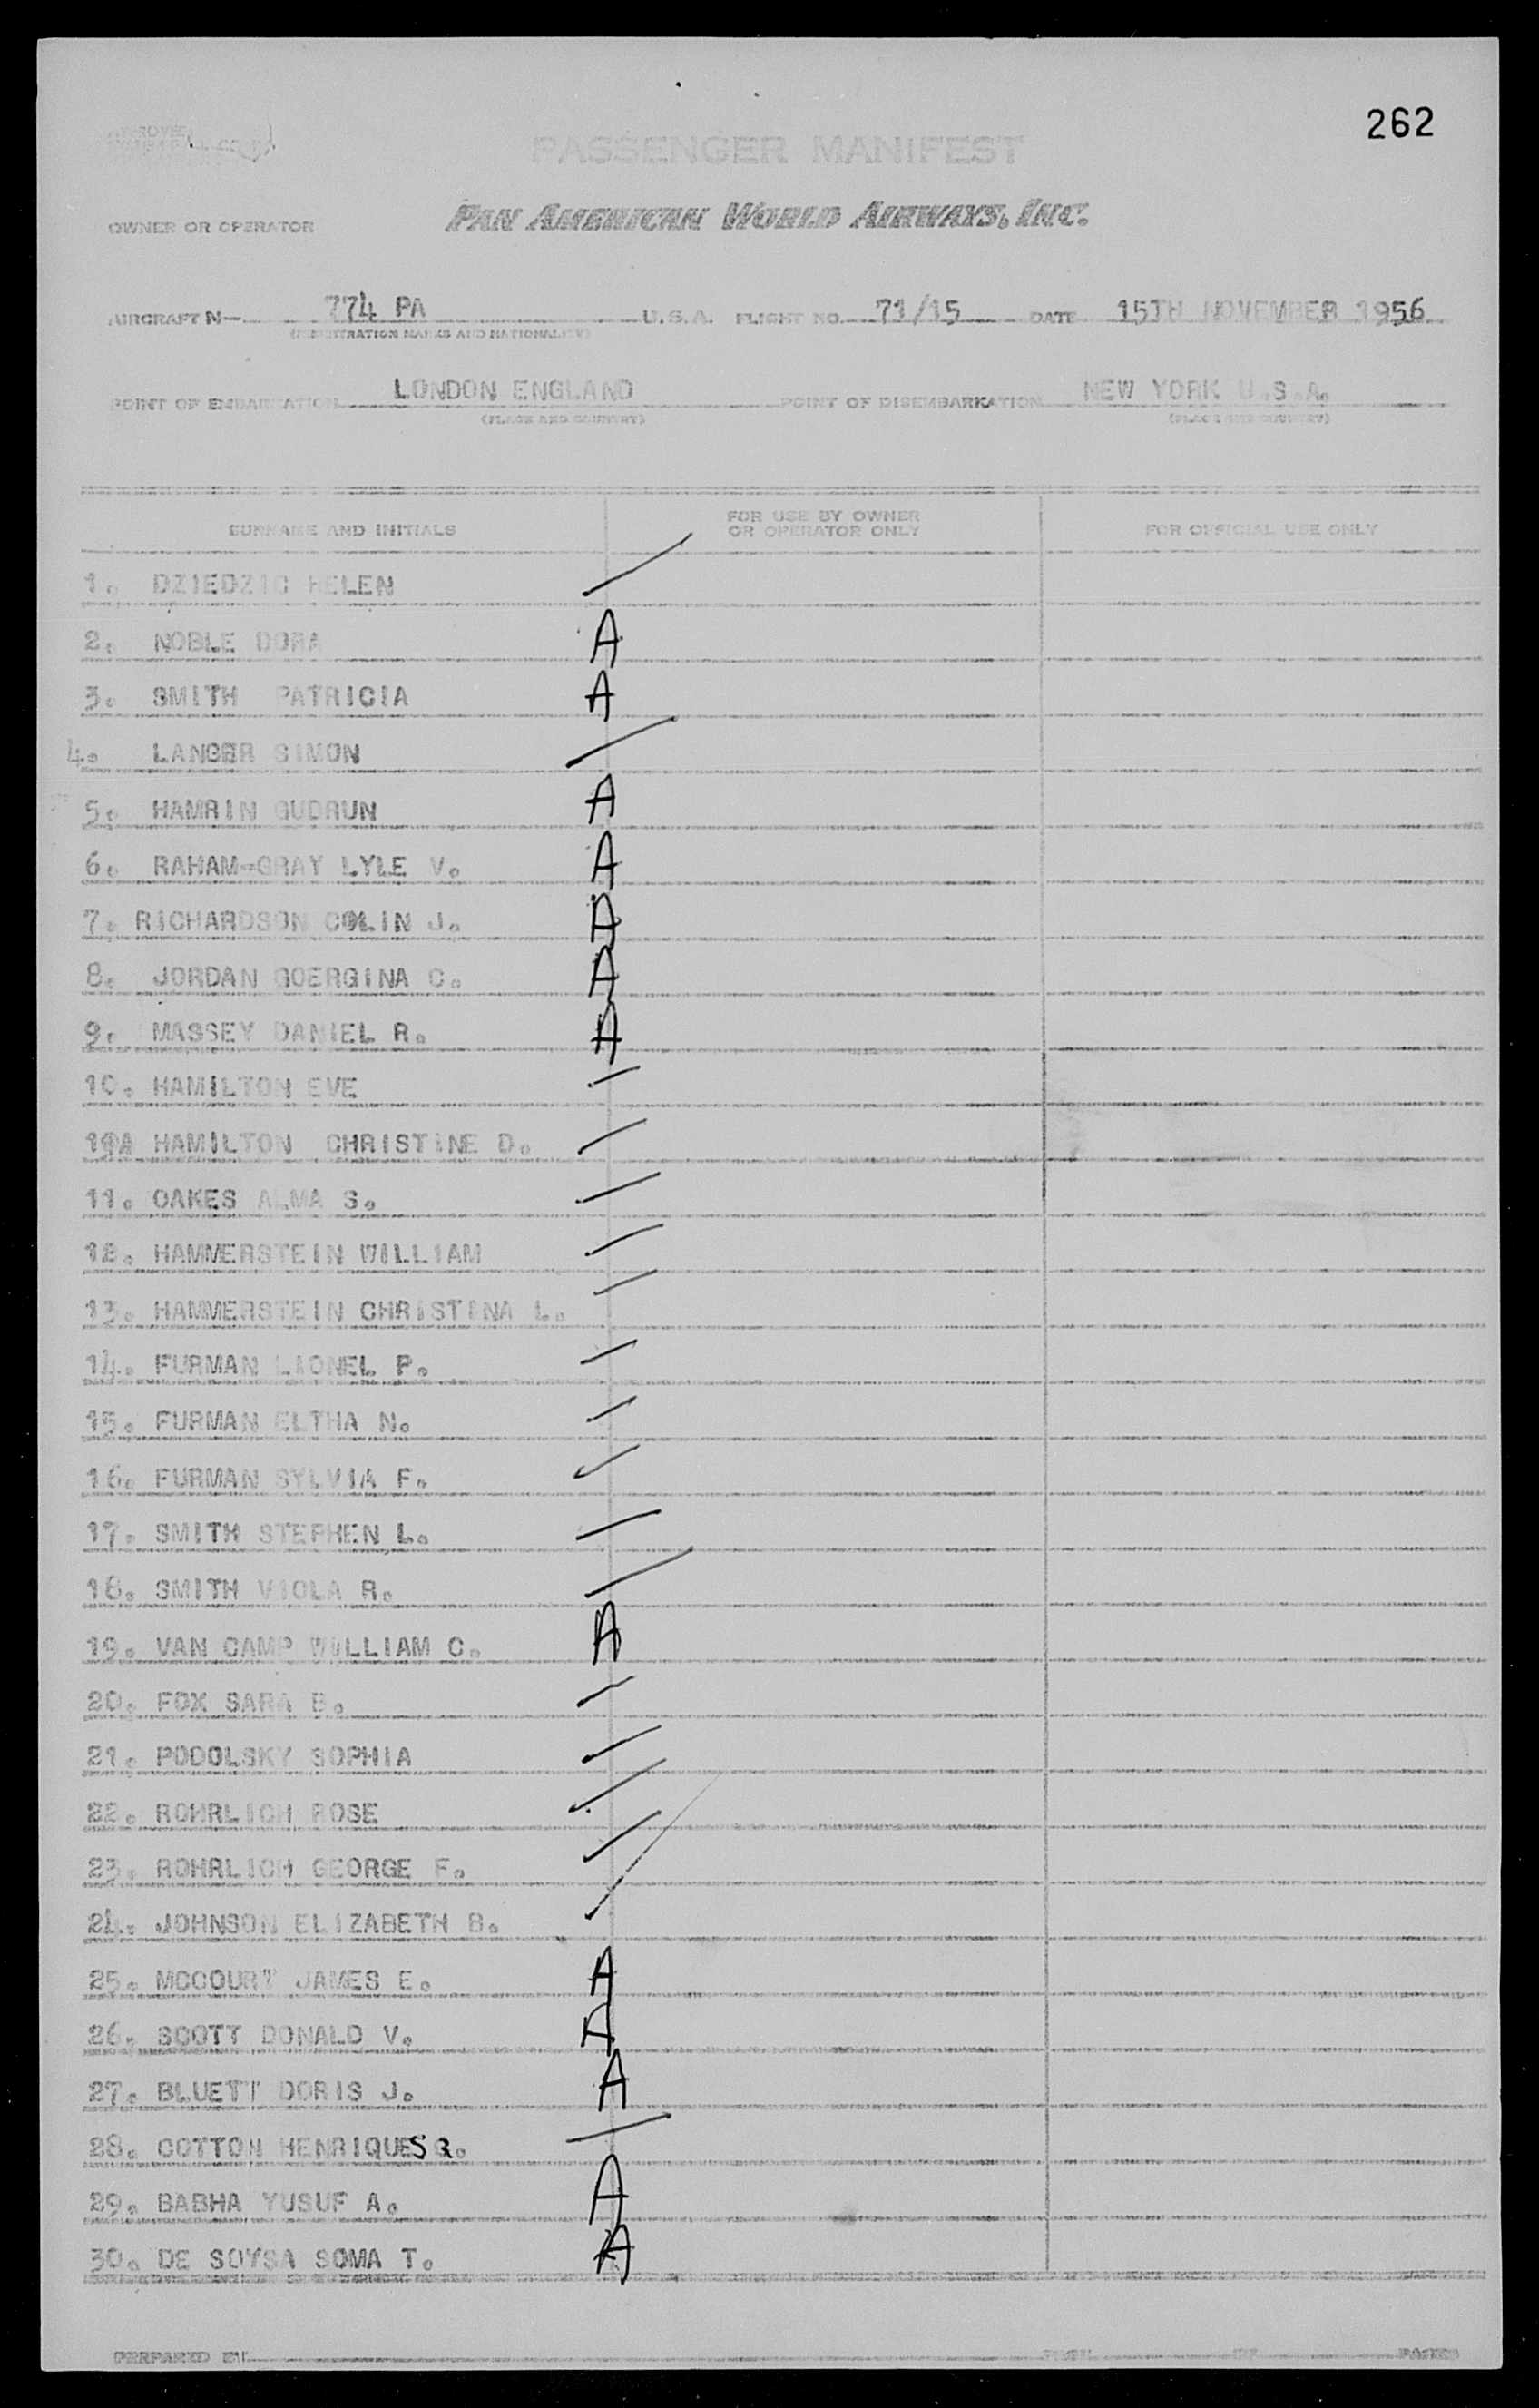 262
PASSENGER MANIFEST
OWNER OR OPERATOR PAN AMERICAN WORLD AIRWAYS, INC.
AIRCRAFT N— 774 PA U.S.A. FLIGHT NO. 71/15 DATE 15TH NOVEMBER 1956
(REGISTRATION MARKS AND NATIONALITY)
POINT OF EMBARKATION LONDON ENGLAND POINT OF DISEMBARKATION NEW YORK U.S.A.
(PLACE AND COUNTRY) (PLACE AND COUNTRY)
SURNAME AND INITIALS FOR USE BY OWNER OR OPERATOR ONLY FOR OFFICIAL USE ONLY
1. DZIEDZIC HELEN
2. NOBLE DORA A
3. SMITH PATRICIA A
4. LANGER SIMON
5. HAMRIN GUDRUN A
6. RAHAM-GRAY LYLE V. A
7. RICHARDSON COLIN J. A
8. JORDAN GOERGINA C. A
9. MASSEY DANIEL R. A
10. HAMILTON EVE
HAMILTON CHRISTINE D.
11. OAKES ALMA S.
12. HAMMERSTEIN WILLIAM
13. HAMMERSTEIN CHRISTINA L.
14. FURMAN LIONEL P.
15. FURMAN ELTHA N.
16. FURMAN SYLVIA F.
17. SMITH STEPHEN L.
18. SMITH VIOLA R.
19. VAN CAMP WILLIAM C. A
20. FOX SARA B.
21. PODOLSKY SOPHIA
22. ROHRLICH ROSE
23. ROHRLICH GEORGE F.
24. JOHNSON ELIZABETH B.
25. MCCOURT JAMES E. A
26. SCOTT DONALD V. A
27. BLUETT DORIS J. A
28. COTTON HENRIQUES R.
29. BABHA YUSUF A. A
30. DE SOYSA SOMA T. A
PREPARED BY PAGES